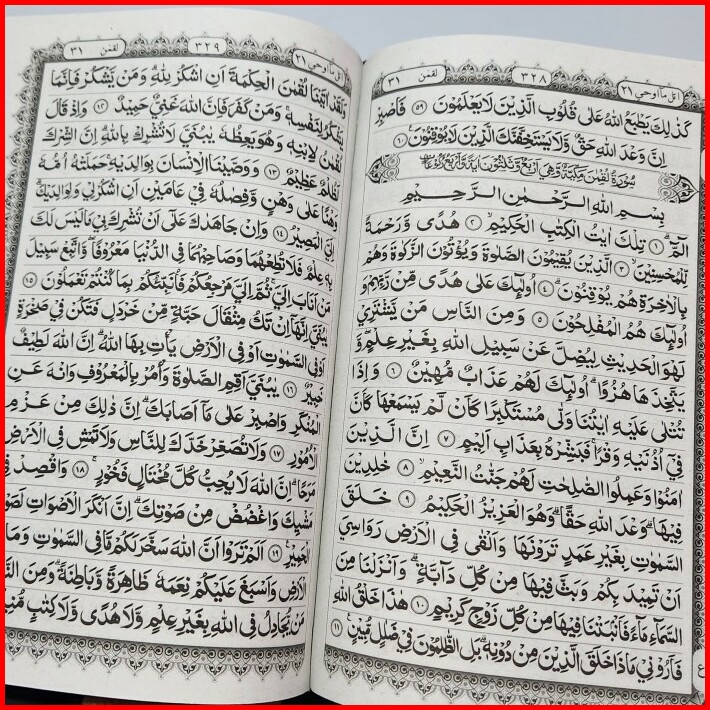 اتل ما اوحي ٢١ ٣٢٨ لقمن ٣١
كَذٰلِكَ يَطْبَعُ اللّٰهُ عَلٰى قُلُوْبِ الَّذِيْنَ لَا يَعْلَمُوْنَ ٥٩ فَاصْبِرْ
اِنَّ وَعْدَ اللّٰهِ حَقٌّ وَّلَا يَسْتَخِفَّنَّكَ الَّذِيْنَ لَا يُوْقِنُوْنَ ٦٠
سُوْرَةُ لُقْمٰنَ مَكِّيَّةٌ وَهِيَ اَرْبَعٌ وَّثَلٰثُوْنَ اٰيَةً
بِسْمِ اللّٰهِ الرَّحْمٰنِ الرَّحِيْمِ
الٓمّٓ ١ تِلْكَ اٰيٰتُ الْكِتٰبِ الْحَكِيْمِ ٢ هُدًى وَّرَحْمَةً
لِّلْمُحْسِنِيْنَ ٣ الَّذِيْنَ يُقِيْمُوْنَ الصَّلٰوةَ وَيُؤْتُوْنَ الزَّكٰوةَ وَهُمْ
بِالْاٰخِرَةِ هُمْ يُوْقِنُوْنَ ٤ اُولٰٓئِكَ عَلٰى هُدًى مِّنْ رَّبِّهِمْ وَ
اُولٰٓئِكَ هُمُ الْمُفْلِحُوْنَ ٥ وَمِنَ النَّاسِ مَنْ يَّشْتَرِيْ
لَهْوَ الْحَدِيْثِ لِيُضِلَّ عَنْ سَبِيْلِ اللّٰهِ بِغَيْرِ عِلْمٍ وَّ
يَتَّخِذَهَا هُزُوًا اُولٰٓئِكَ لَهُمْ عَذَابٌ مُّهِيْنٌ ٦ وَاِذَا
تُتْلٰى عَلَيْهِ اٰيٰتُنَا وَلّٰى مُسْتَكْبِرًا كَاَنْ لَّمْ يَسْمَعْهَا كَاَنَّ
فِيْٓ اُذُنَيْهِ وَقْرًا فَبَشِّرْهُ بِعَذَابٍ اَلِيْمٍ ٧ اِنَّ الَّذِيْنَ
اٰمَنُوْا وَعَمِلُوا الصّٰلِحٰتِ لَهُمْ جَنّٰتُ النَّعِيْمِ ٨ خٰلِدِيْنَ
فِيْهَا وَعْدَ اللّٰهِ حَقًّا وَهُوَ الْعَزِيْزُ الْحَكِيْمُ ٩ خَلَقَ
السَّمٰوٰتِ بِغَيْرِ عَمَدٍ تَرَوْنَهَا وَاَلْقٰى فِى الْاَرْضِ رَوَاسِيَ
اَنْ تَمِيْدَ بِكُمْ وَبَثَّ فِيْهَا مِنْ كُلِّ دَآبَّةٍ وَاَنْزَلْنَا مِنَ
السَّمَآءِ مَآءً فَاَنْۢبَتْنَا فِيْهَا مِنْ كُلِّ زَوْجٍ كَرِيْمٍ ١٠ هٰذَا خَلْقُ اللّٰهِ
فَاَرُوْنِيْ مَاذَا خَلَقَ الَّذِيْنَ مِنْ دُوْنِهٖ بَلِ الظّٰلِمُوْنَ فِيْ ضَلٰلٍ مُّبِيْنٍ ١١
اتل ما اوحي ٢١ ٣٢٩ لقمن ٣١
وَلَقَدْ اٰتَيْنَا لُقْمٰنَ الْحِكْمَةَ اَنِ اشْكُرْ لِلّٰهِ وَمَنْ يَّشْكُرْ فَاِنَّمَا
يَشْكُرُ لِنَفْسِهٖ وَمَنْ كَفَرَ فَاِنَّ اللّٰهَ غَنِيٌّ حَمِيْدٌ ١٢ وَاِذْ قَالَ
لُقْمٰنُ لِابْنِهٖ وَهُوَ يَعِظُهٗ يٰبُنَيَّ لَا تُشْرِكْ بِاللّٰهِ اِنَّ الشِّرْكَ
لَظُلْمٌ عَظِيْمٌ ١٣ وَوَصَّيْنَا الْاِنْسَانَ بِوَالِدَيْهِ حَمَلَتْهُ اُمُّهٗ
وَهْنًا عَلٰى وَهْنٍ وَّفِصٰلُهٗ فِيْ عَامَيْنِ اَنِ اشْكُرْ لِيْ وَلِوَالِدَيْكَ
اِلَيَّ الْمَصِيْرُ ١٤ وَاِنْ جَاهَدٰكَ عَلٰٓى اَنْ تُشْرِكَ بِيْ مَا لَيْسَ لَكَ
بِهٖ عِلْمٌ فَلَا تُطِعْهُمَا وَصَاحِبْهُمَا فِى الدُّنْيَا مَعْرُوْفًا وَّاتَّبِعْ سَبِيْلَ
مَنْ اَنَابَ اِلَيَّ ثُمَّ اِلَيَّ مَرْجِعُكُمْ فَاُنَبِّئُكُمْ بِمَا كُنْتُمْ تَعْمَلُوْنَ ١٥
يٰبُنَيَّ اِنَّهَآ اِنْ تَكُ مِثْقَالَ حَبَّةٍ مِّنْ خَرْدَلٍ فَتَكُنْ فِيْ صَخْرَةٍ
اَوْ فِى السَّمٰوٰتِ اَوْ فِى الْاَرْضِ يَأْتِ بِهَا اللّٰهُ اِنَّ اللّٰهَ لَطِيْفٌ
خَبِيْرٌ ١٦ يٰبُنَيَّ اَقِمِ الصَّلٰوةَ وَأْمُرْ بِالْمَعْرُوْفِ وَانْهَ عَنِ
الْمُنْكَرِ وَاصْبِرْ عَلٰى مَآ اَصَابَكَ اِنَّ ذٰلِكَ مِنْ عَزْمِ
الْاُمُوْرِ ١٧ وَلَا تُصَعِّرْ خَدَّكَ لِلنَّاسِ وَلَا تَمْشِ فِى الْاَرْضِ
مَرَحًا اِنَّ اللّٰهَ لَا يُحِبُّ كُلَّ مُخْتَالٍ فَخُوْرٍ ١٨ وَاقْصِدْ فِيْ
مَشْيِكَ وَاغْضُضْ مِنْ صَوْتِكَ اِنَّ اَنْكَرَ الْاَصْوَاتِ لَصَوْتُ
الْحَمِيْرِ ١٩ اَلَمْ تَرَوْا اَنَّ اللّٰهَ سَخَّرَ لَكُمْ مَّا فِى السَّمٰوٰتِ وَمَا
الْاَرْضِ وَاَسْبَغَ عَلَيْكُمْ نِعَمَهٗ ظَاهِرَةً وَّبَاطِنَةً وَمِنَ
مَنْ يُّجَادِلُ فِى اللّٰهِ بِغَيْرِ عِلْمٍ وَّلَا هُدًى وَّلَا كِتٰبٍ